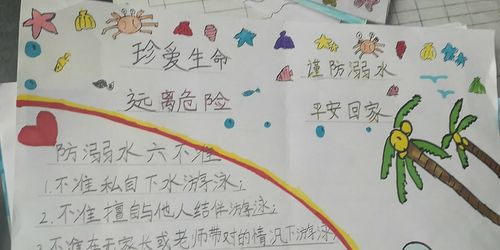 珍爱生命
远离危险
谨防溺水
平安回家
防溺水六不准
1.不准私自下水游泳;
2.不准擅自与他人结伴游泳;
3.不准在无家长或老师带对的情况下游泳;